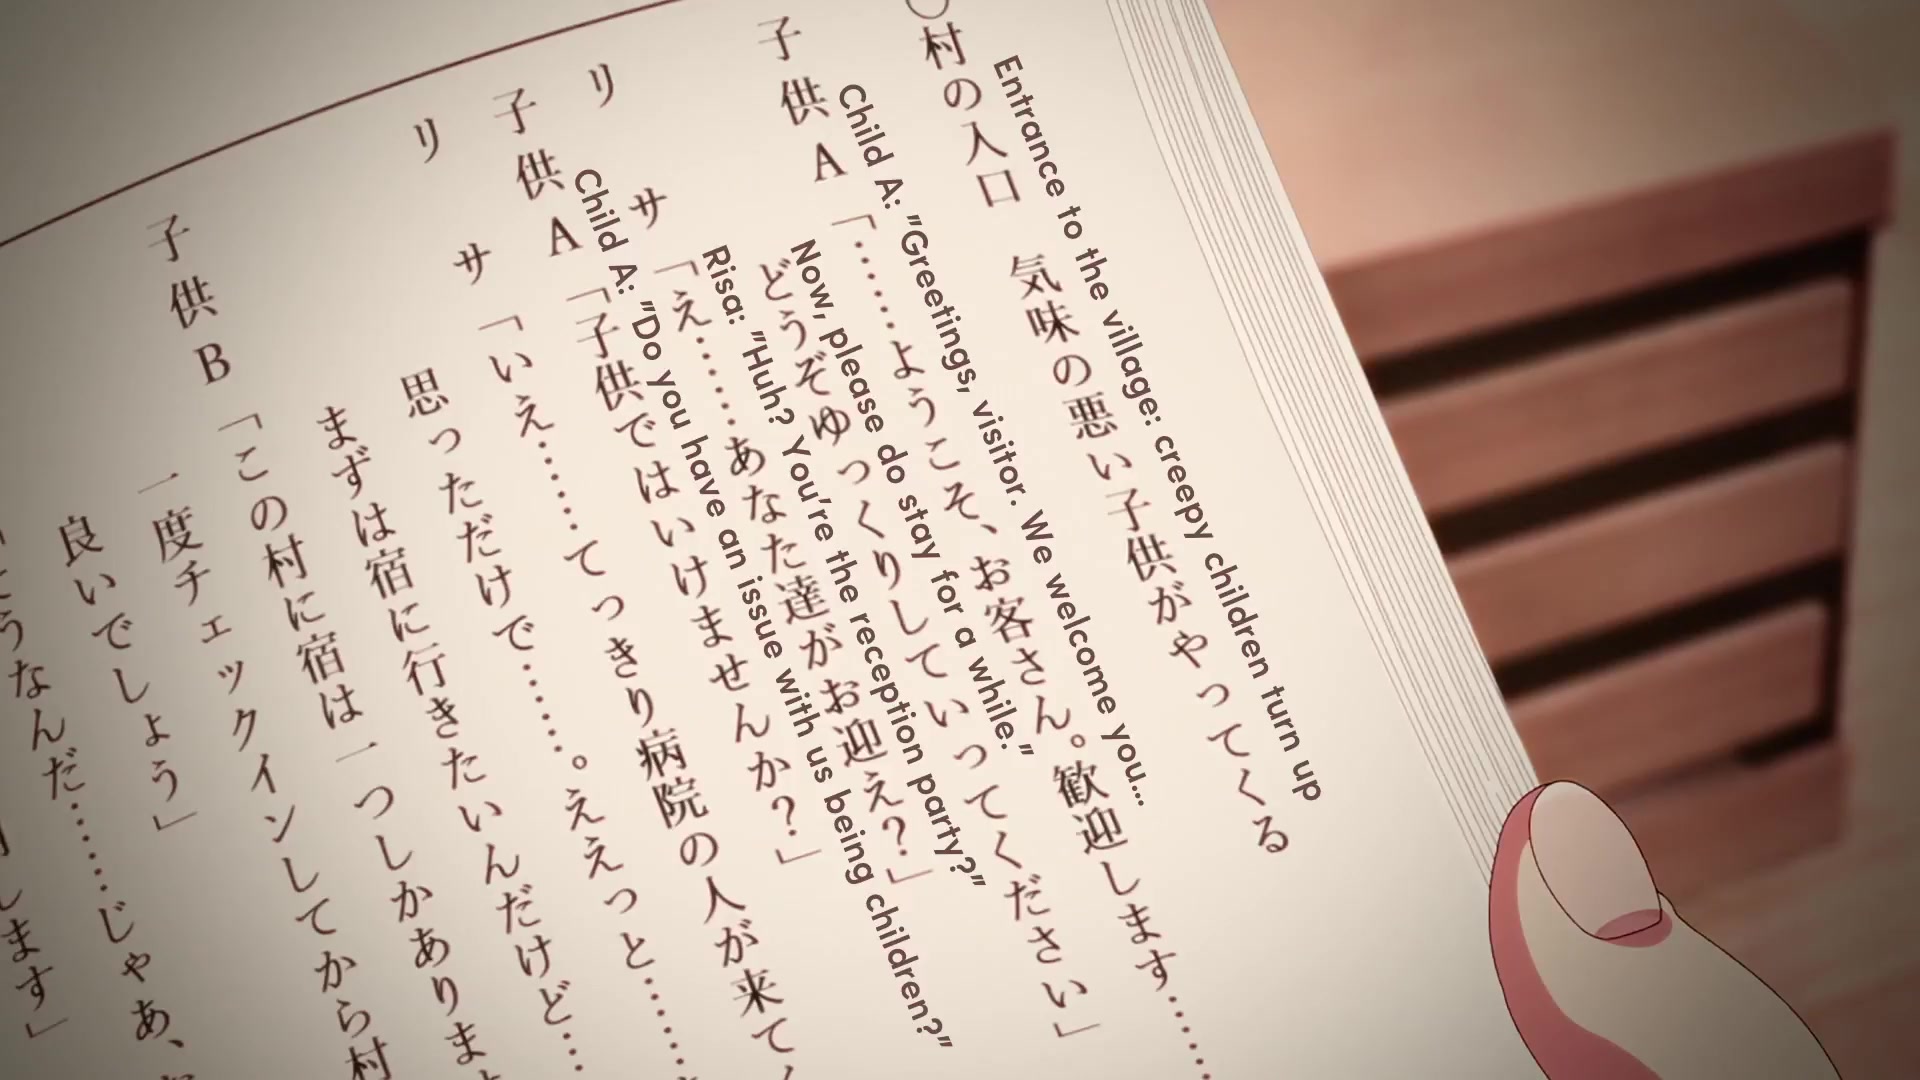 ○村の入口　気味の悪い子供がやってくる
Entrance to the village: creepy children turn up
子供A「……ようこそ、お客さん。歓迎します……
Child A: "Greetings, visitor. We welcome you...
どうぞゆっくりしていってください」
Now, please do stay for a while."
リサ「え……あなた達がお迎え？」
Risa: "Huh? You're the reception party?"
子供A「子供ではいけませんか？」
Child A: "Do you have an issue with us being children?"
リサ「いえ……てっきり病院の人が来て
思っただけで……。ええっと……
まずは宿に行きたいんだけど…
子供B「この村に宿は一つしかありま
一度チェックインしてから村
良いでしょう」
うなんだ……じゃあ、
します」